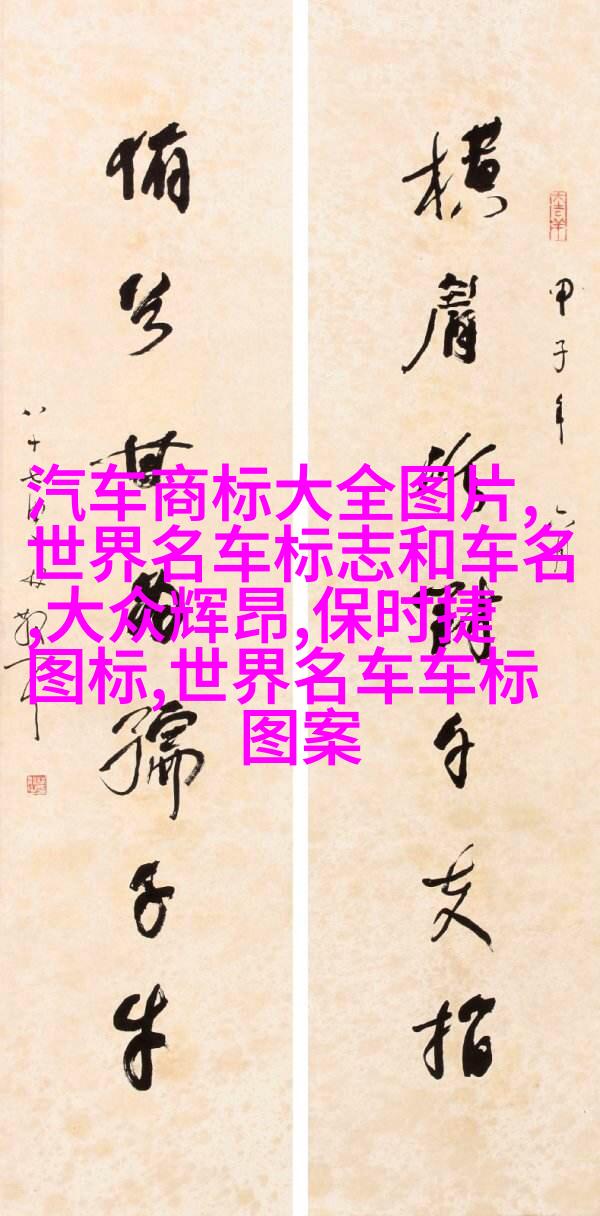 汽车商标大全图片,
世界名车标志和车名
,大众辉昂,保时捷
图标,世界名车车标
图案
横眉冷對千夫指
甲子年
俯首甘为孺子牛